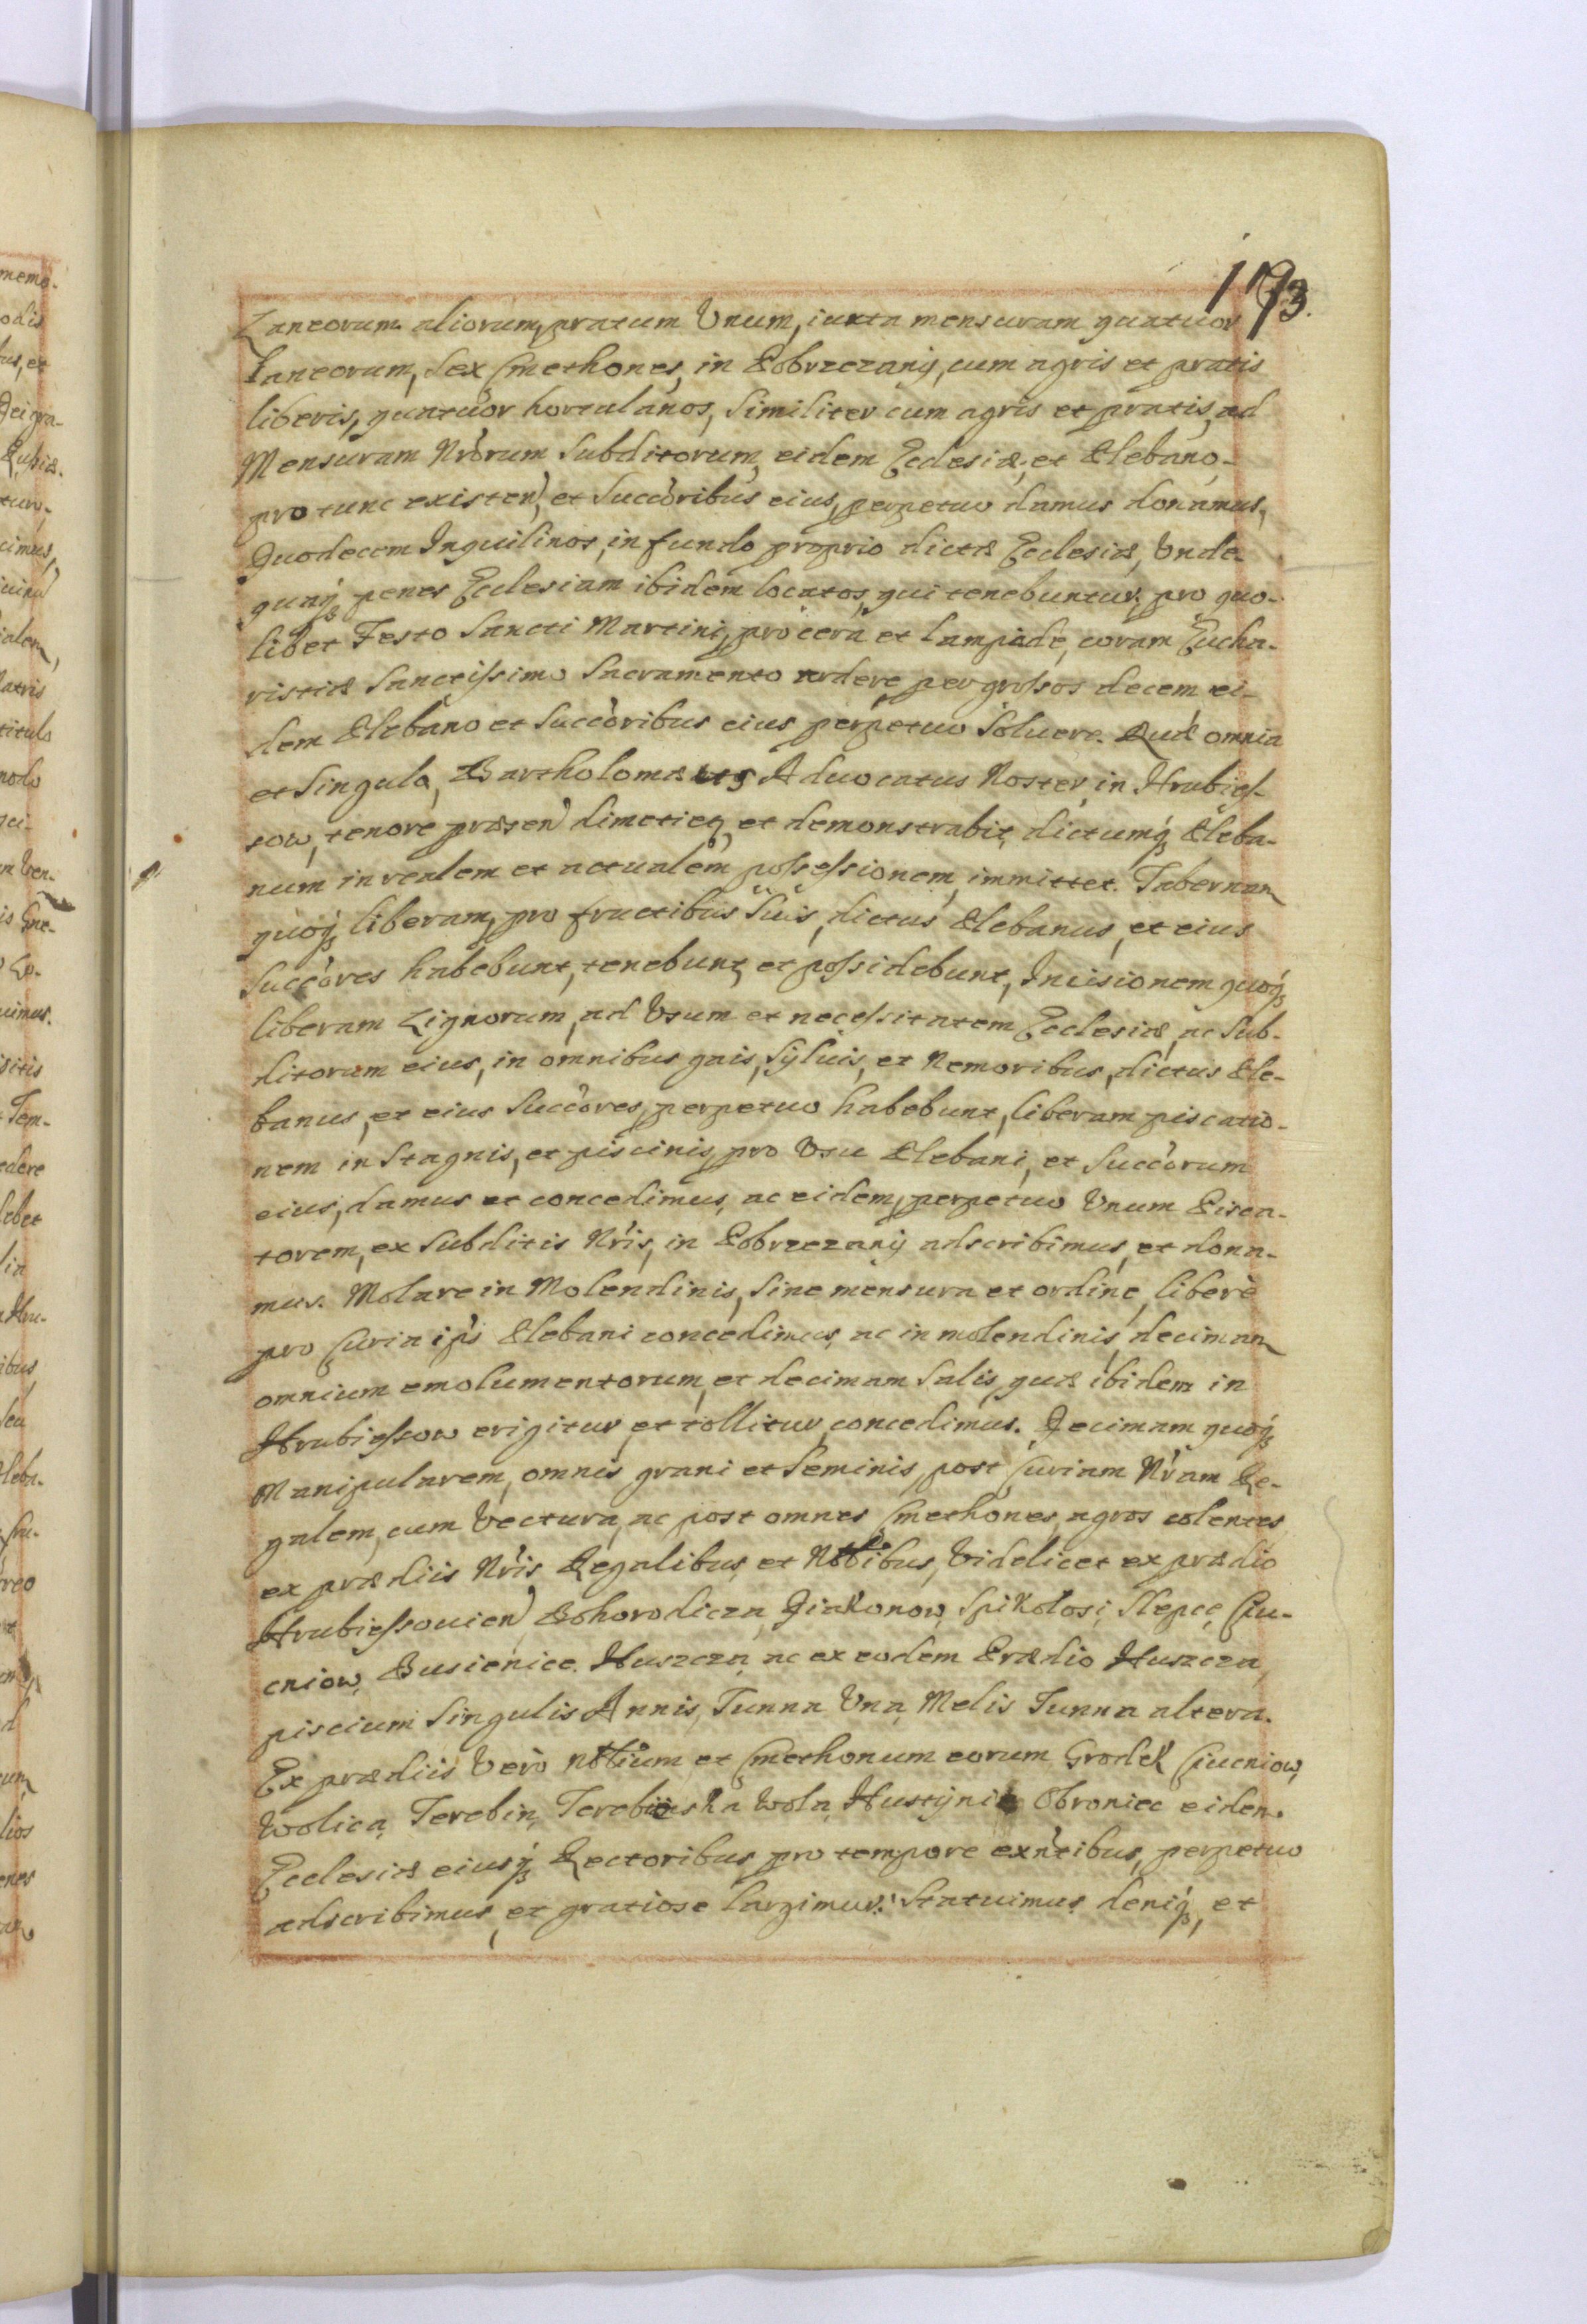 173.
Laneorum aliorum, pratum Vnum, iuxta mensuram quatuor
Laneorum, Sex Cmethones, in Pobrzezany, cum agris et pratis
liberis, quatuor hortulanos, Similiter cum agris et pratis, ad
Mensuram Nrorum Subditorum, eidem Ecclesiæ, et Plebano,
pro tunc existen, et Succoribus eius, perpetuo damus donamus,
Quodecem Inquilinos, in fundo proprio dictæ Ecclesiæ, Vnde
quaq penes Ecclesiam ibidem locatos, qui tenebuntur. pro quo-
libet Festo Sancti Martini, pro cera et lampade, coram Eucha-
ristiæ Sanctissimo Sacramento ardere, per grossos decem ei-
dem Plebano et Succoribus eius perpetuo Soluere. Quæ omnia
et Singula, Bartholomæus Aduocatus Noster, in Hrubies-
sow, tenore præsen dimetieq et demonstrabit, dictumq Pleba-
num in realem et actualem possessionem, immittet. Tabernam
quoq liberam, pro fructibus Suis, dictus Plebanus, et eius
Succores habebunt, tenebunt, et possidebunt, Incisionem quoq
liberam Lignorum, ad Vsum et necessitatem Ecclesiæ, ac Sub-
ditorum eius, in omnibus gais, Syluis, et Nemoribus, dictus Ple-
banus, et eius Succores, perpetuo habebunt, liberam piscatio-
nem in Stagnis, et piscinis, pro Vsu Plebani, et Succorum
eius, damus et concedimus, ac eidem, perpetuo Vnum Pisca-
torem, ex Subditis Nris, in Pobrzezany adscribimus, et dona-
mus. Molare in Molendinis, Sine mensura et ordine, liberè
pro Curia ips Plebani concedimus, ac in molendinis, decimam
omnium emolumentorum, et decimam Salis, quæ ibidem in
Hrubiessow erigitur, et tollitur, concedimus. Decimam quoq
Manipularem, omnis grani et Seminis, post Curiam Nram Re-
galem, cum Vectura, ac post omnes Cmethones, agros colentes
ex prædiis Nris Regalibus, et Nobibus, Videlicet ex prædio
Hrubiessouien, Bohorodicza, Diakonow, Spikolosi, Slepce, Cu-
cniow, Busienice. Huszcza, ac ex eodem Prædio Huszcza,
piscium Singulis Annis, Tunna Vna, Melis Tunna altera.
Ex prædiis Verò Nobium et Cmethonum eorum Grodek Ciucniow,
Wolica, Terebin, Terebinska Wola, Hustynie Obroniec eidem
Ecclesiæ eiusq Rectoribus pro tempore exntibus, perpetuo
adscribimus, et gratiose largimur. Statuimus deniq, et